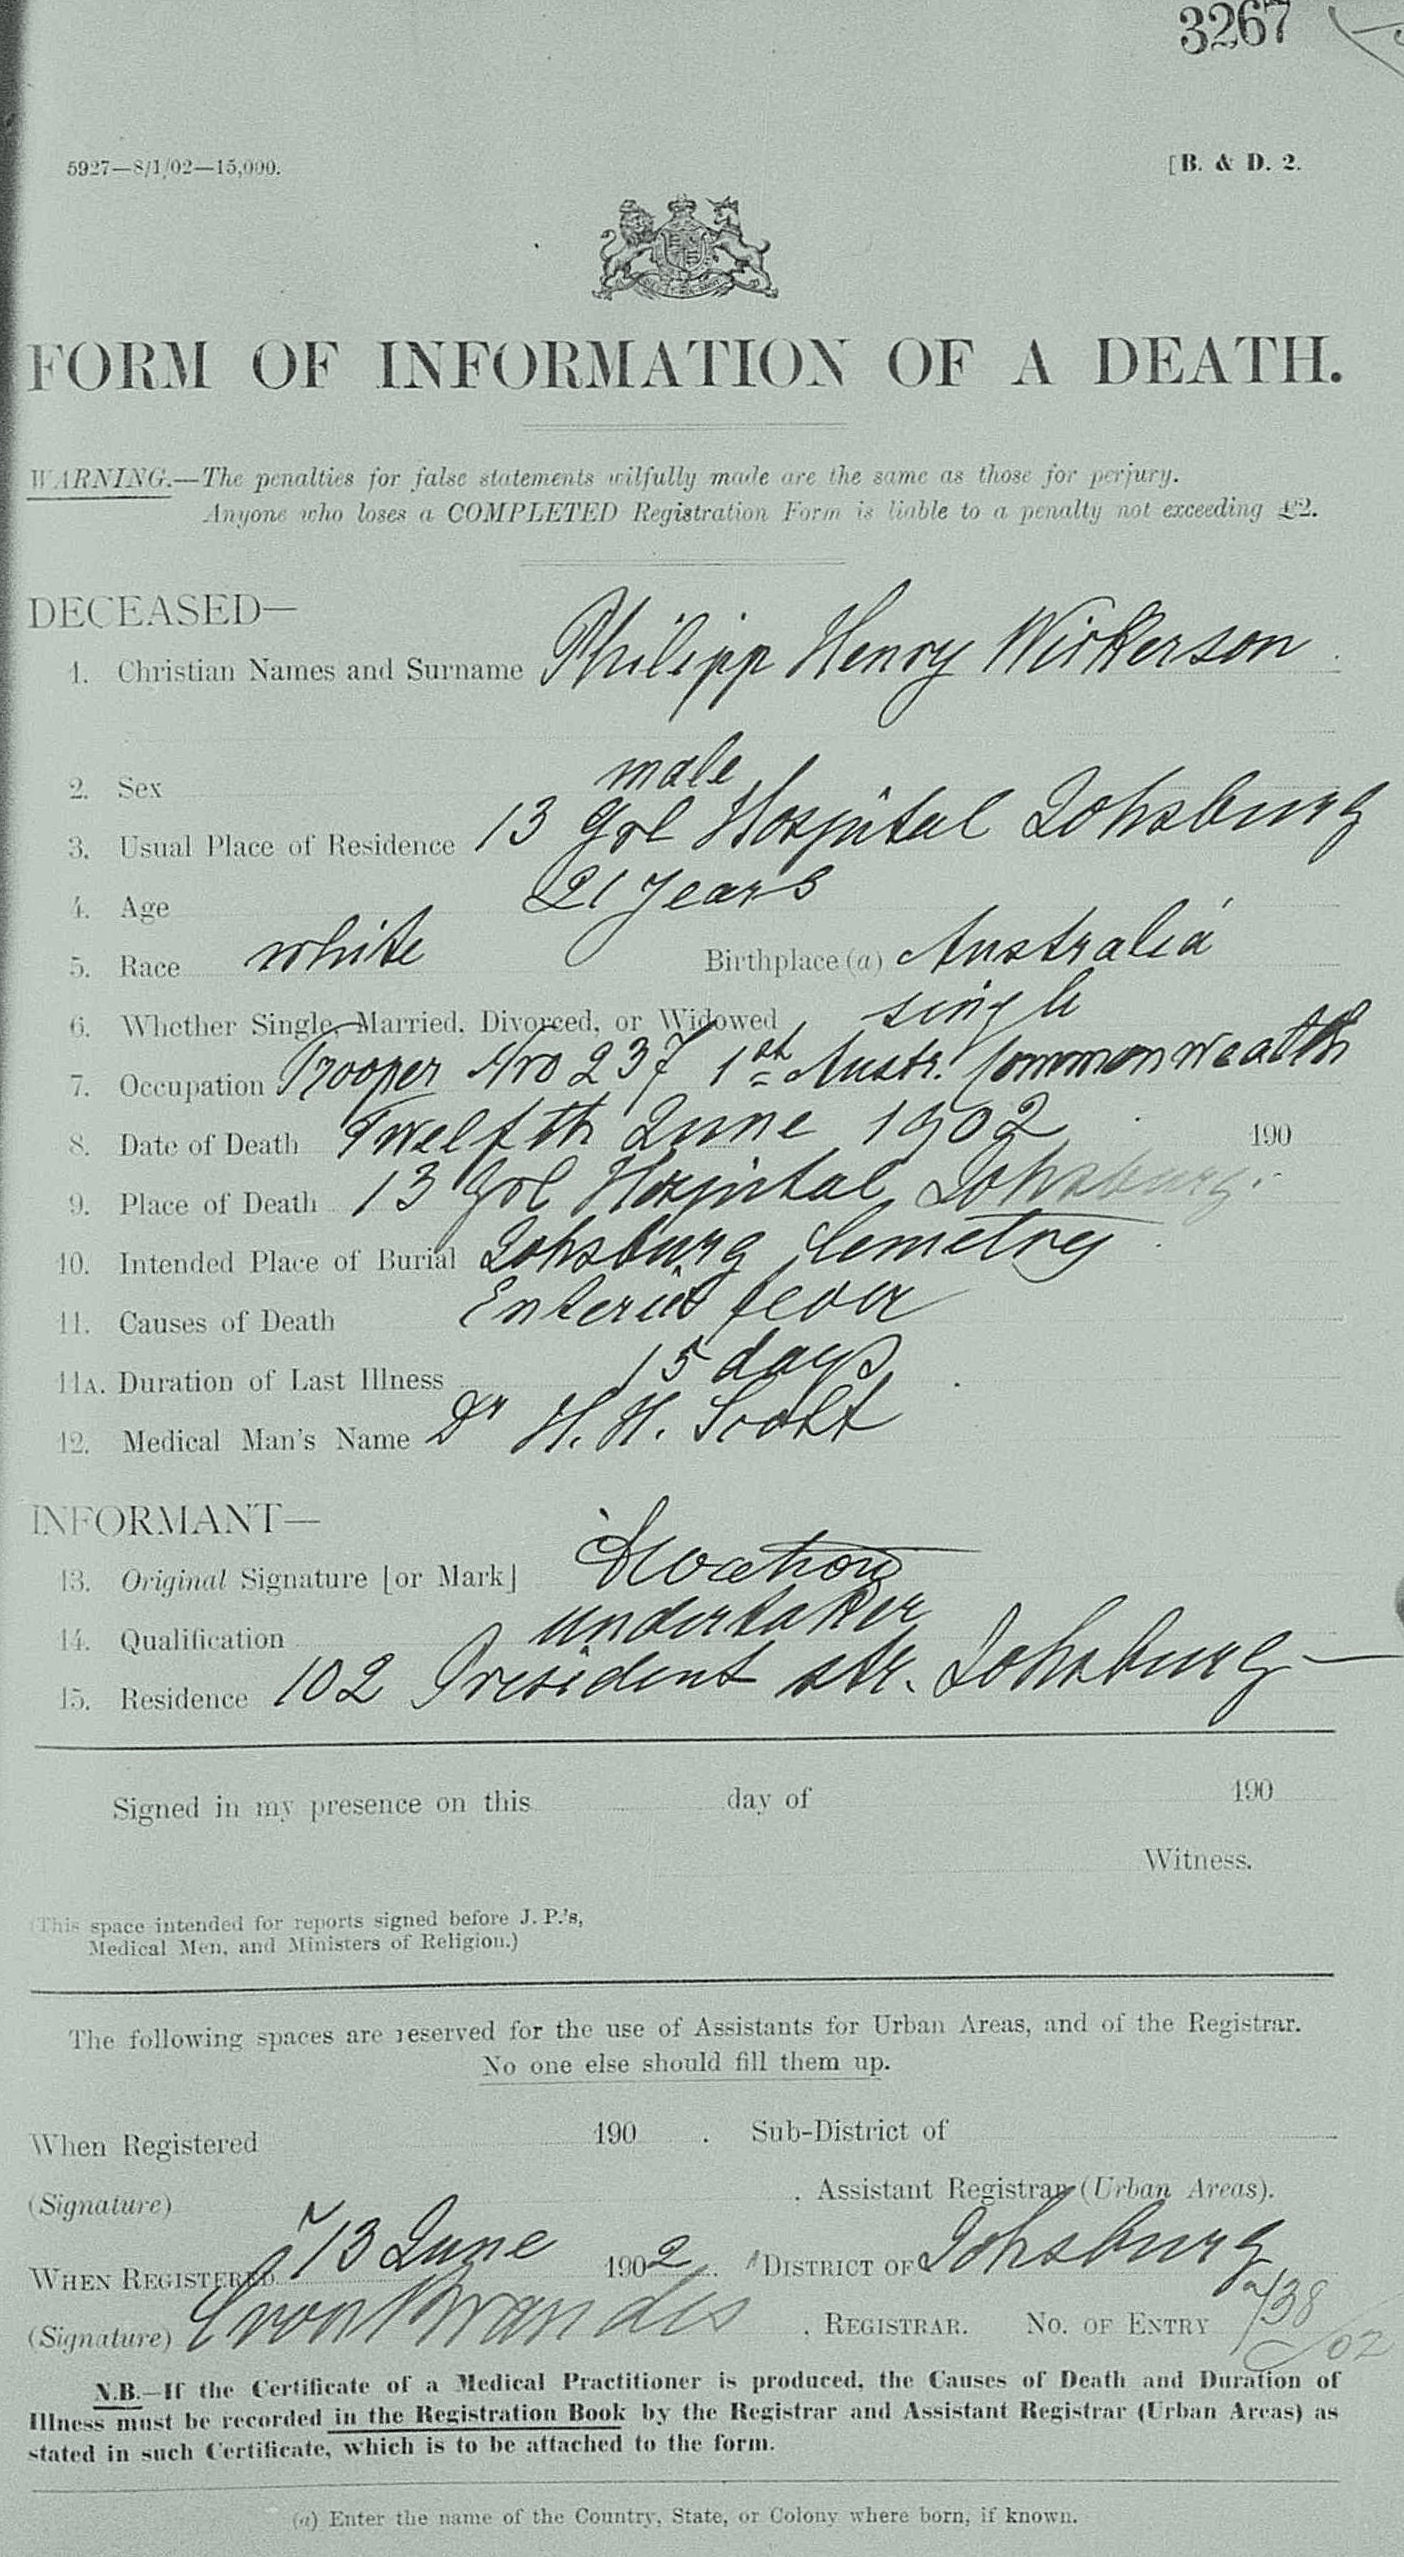 3267
5927—8/1/02—15,000. [B. & D. 2.
FORM OF INFORMATION OF A DEATH.
WARNING.—The penalties for false statements wilfully made are the same as those for perjury.
Anyone who loses a COMPLETED Registration Form is liable to a penalty not exceeding £2.
DECEASED—
1. Christian Names and Surname Philipp Henry Wirkerson
2. Sex male
3. Usual Place of Residence 13 Gvl Hospital Johsburg
4. Age 21 years
5. Race white Birthplace (a) Australia
6. Whether Single, Married, Divorced, or Widowed single
7. Occupation Trooper Nro 237 1st Austr. Commonwealth
8. Date of Death Twelfth June 1902 190
9. Place of Death 13 Gvl Hospital Johsburg.
10. Intended Place of Burial Johsburg Cemetry
11. Causes of Death Enteric fever
11A. Duration of Last Illness 15 days
12. Medical Man's Name Dr H. H. Scott
INFORMANT—
13. Original Signature [or Mark]
14. Qualification undertaker
15. Residence 102 President str. Johsburg—
Signed in my presence on this day of 190
Witness.
(This space intended for reports signed before J. P.'s,
Medical Men, and Ministers of Religion.)
The following spaces are reserved for the use of Assistants for Urban Areas, and of the Registrar.
No one else should fill them up.
When Registered 190 . Sub-District of
(Signature) . Assistant Registrar (Urban Areas).
WHEN REGISTERED 13 June 1902. DISTRICT OF Johsburg
(Signature) CvonBrandis . REGISTRAR. No. OF ENTRY 738/02
N.B.—If the Certificate of a Medical Practitioner is produced, the Causes of Death and Duration of
Illness must be recorded in the Registration Book by the Registrar and Assistant Registrar (Urban Areas) as
stated in such Certificate, which is to be attached to the form.
(a) Enter the name of the Country, State, or Colony where born, if known.